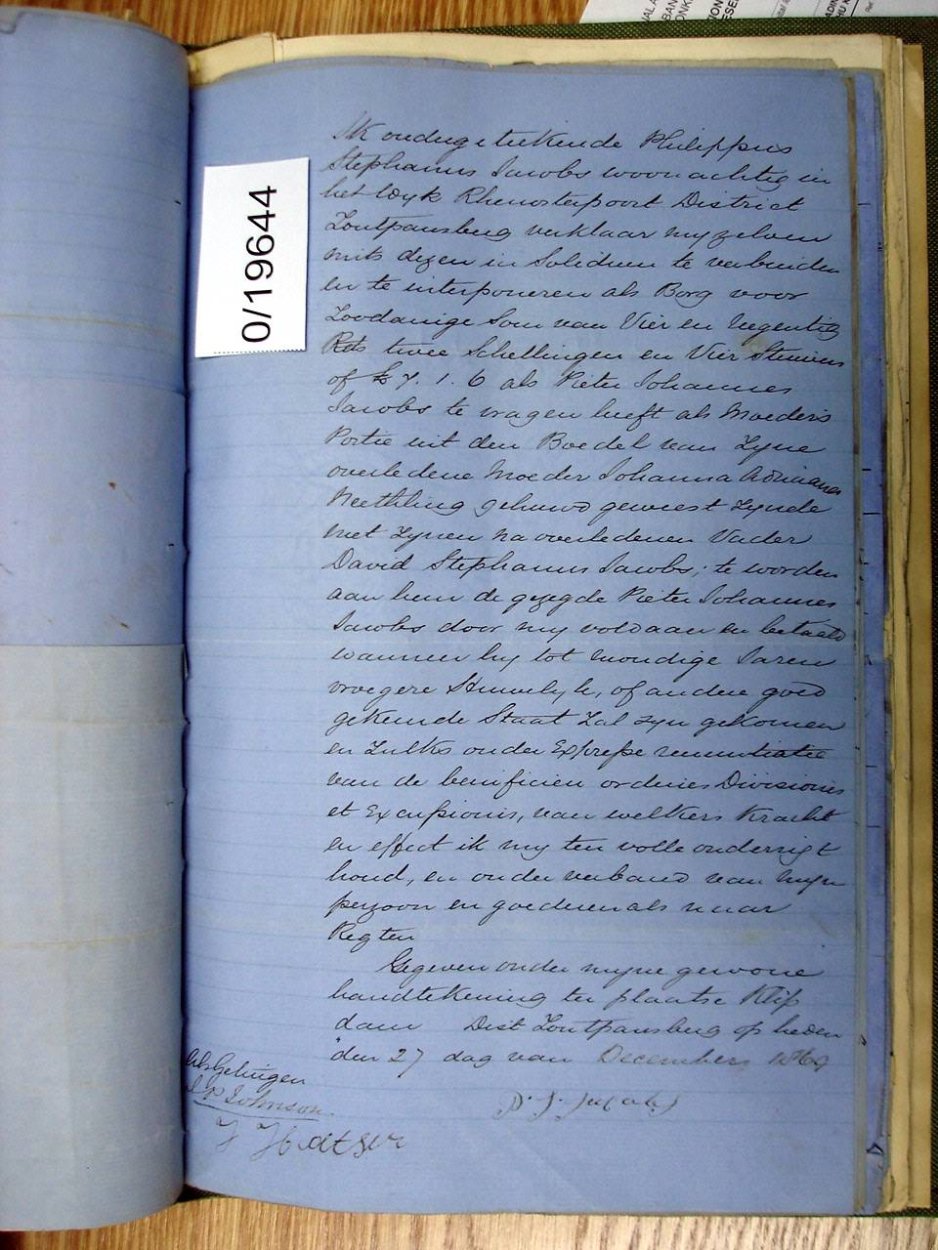 0/19644
Ik ondergetekende Philippus
Stephanus Jacobs woonachtig in
het Wyk Rhenosterpoort District
Zoutpansberg verklaar myzelven
mits dezen in Soledum te verbinden
en te interponeren als Borg voor
Zoodanige Som van Vier en Negentig
Rds twee Schellingen en Vier Stuivers
of £ 7. 1. 6 als Pieter Johannes
Jacobs te vragen heeft als Moeders
Portie uit den Boedel van Zyne
overledene Moeder Johanna Adriana
Neethling gehuwd geweest Zynde
met Zynen na overledenen Vader
David Stephanus Jacobs; te worden
aan hem de gezegde Pieter Johannes
Jacobs door my voldaan en betaald
wanneer hy tot mondige Jaren
vroegere Huwelyk, of andere goed
gekeurde Staat Zal zyn gekomen
en Zulks onder Expresse renuntiatie
van de benificien ordenis Divisionis
et Excussionis, van welkers Kracht
en effect ik my ten volle onderrigt
houd, en onder verband van myn
perzoon en goederen als naar
Regten
Gegeven onder myne gewone
handtekening ter plaatse Klip
dam Dist Zoutpansberg op heden
den 27 dag van Decembers 1869
Als Getuigen
P. S. Jacobs
J P Johnson